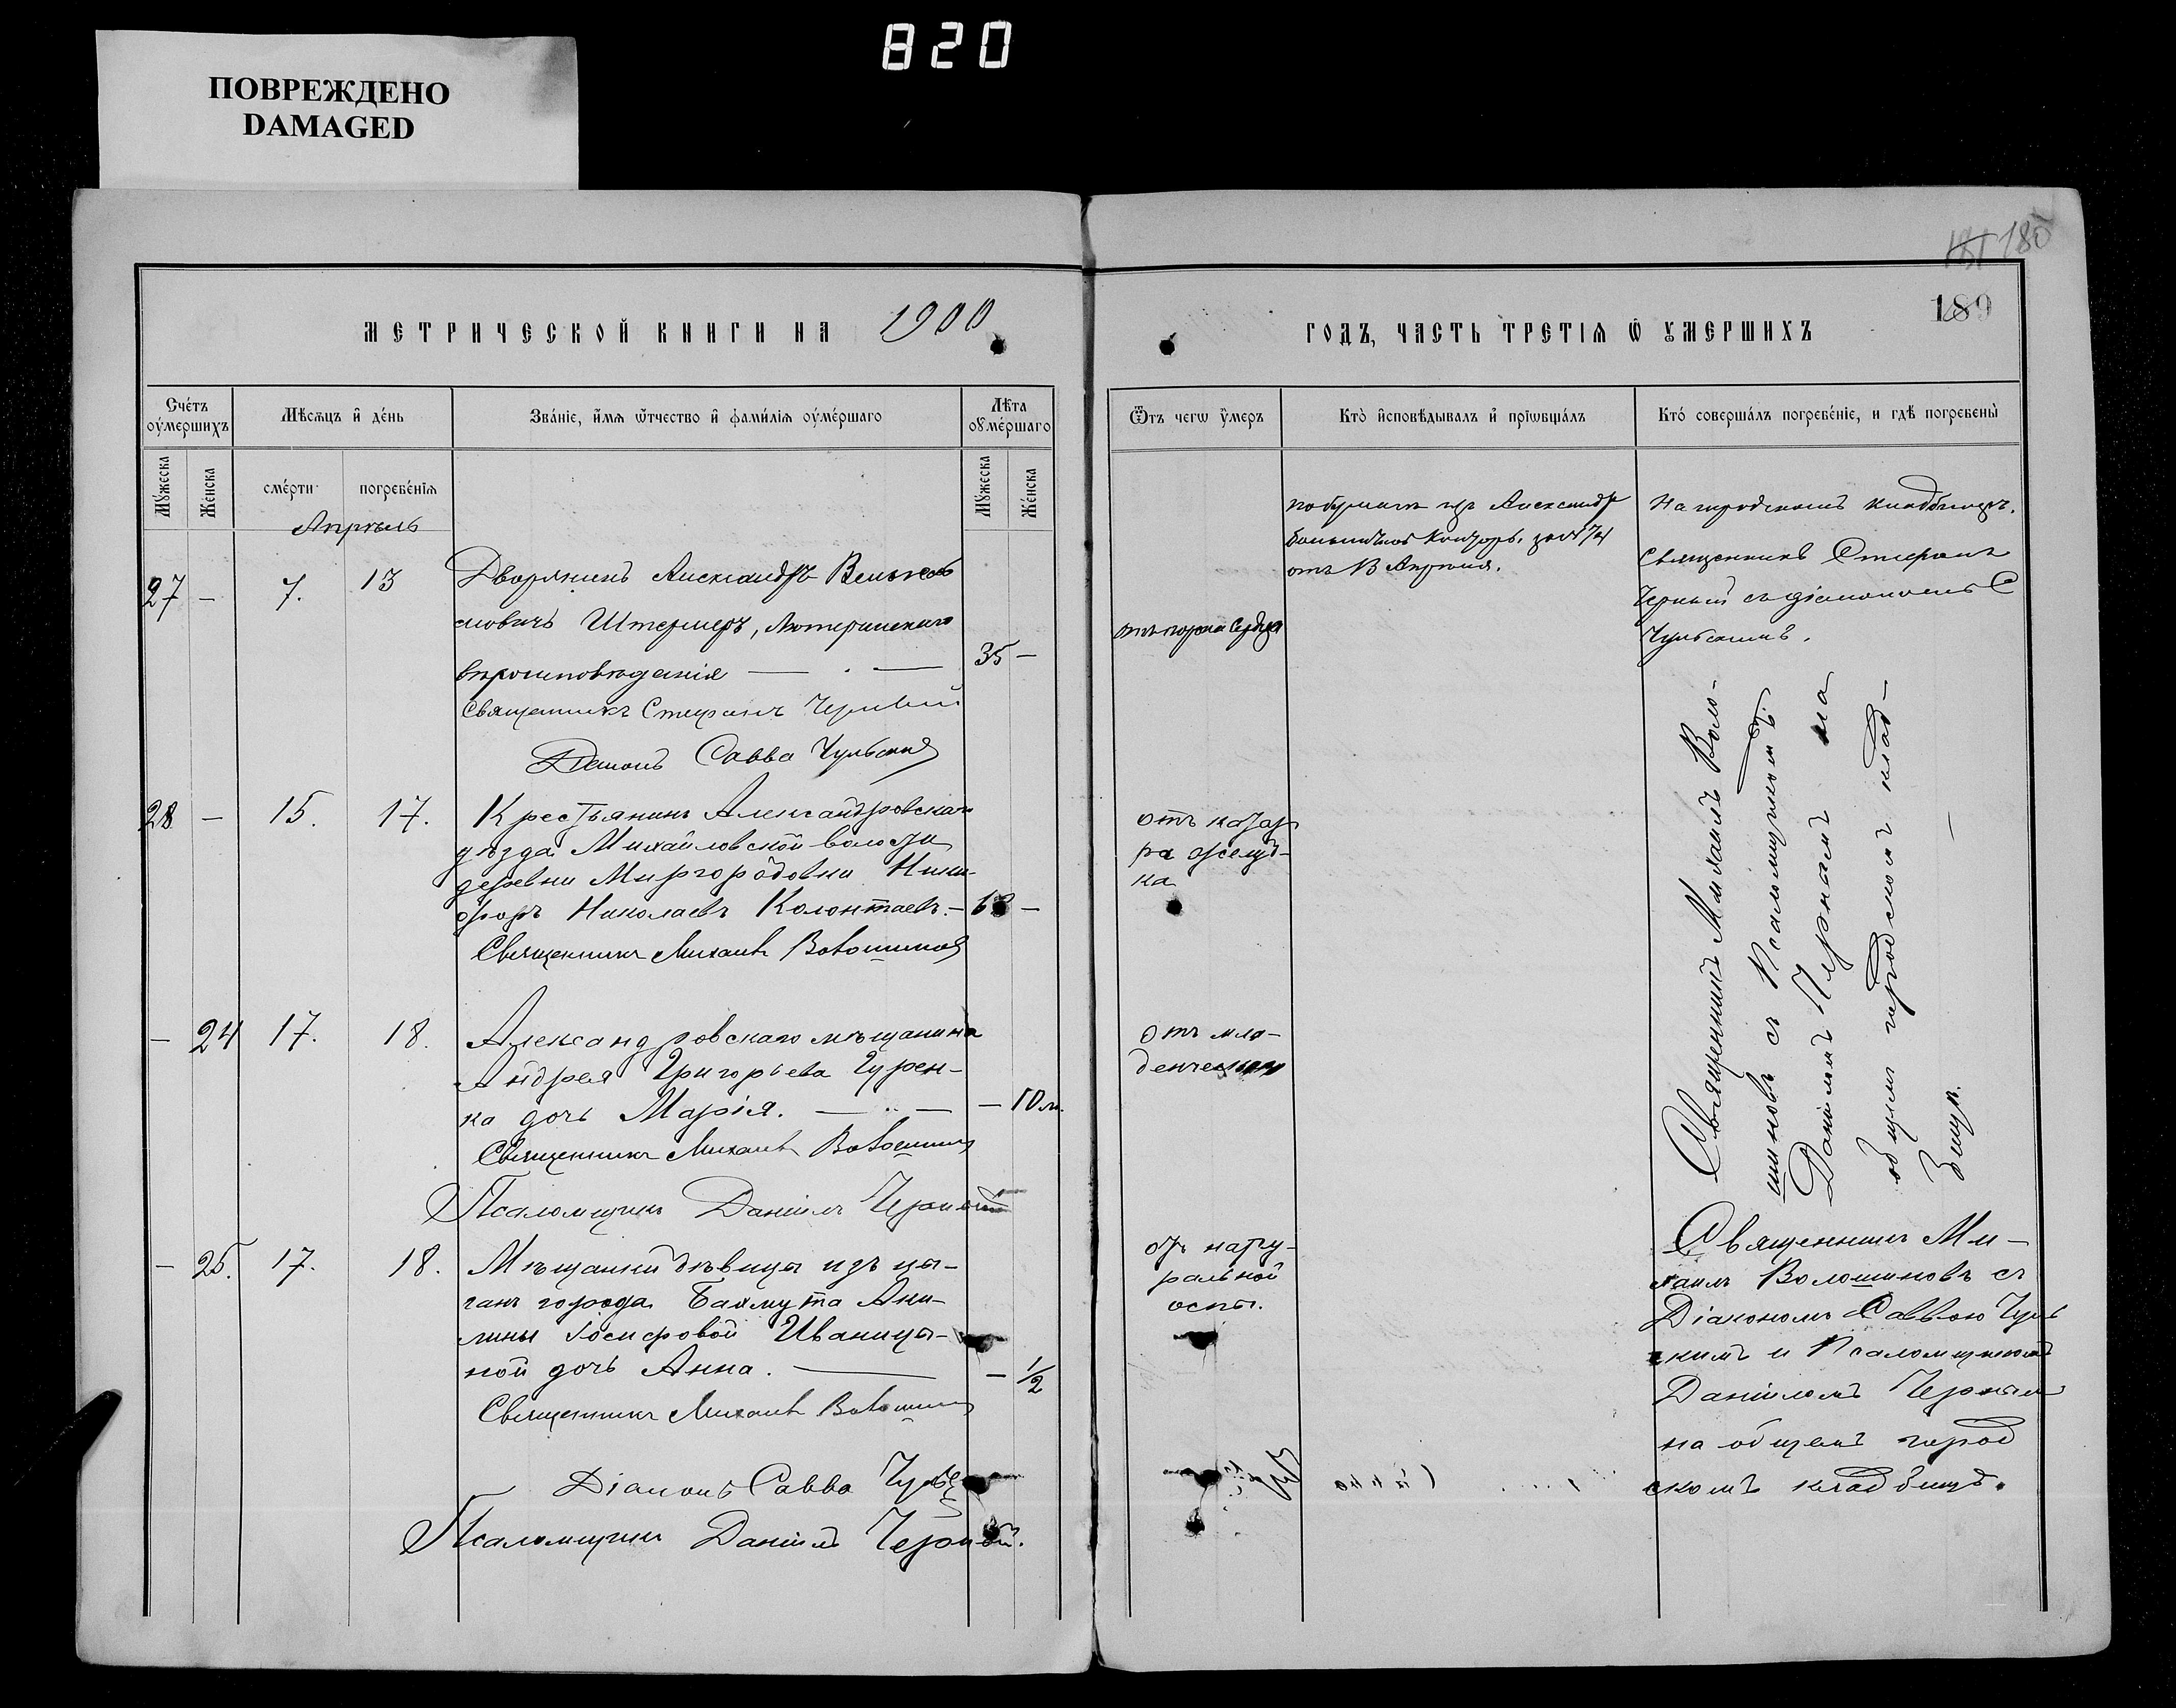 820
ПОВРЕЖДЕНО
DAMAGED
180
189
МЕТРИЧЕСКОЙ КНИГИ НА 1900
ГОДЪ, ЧАСТЬ ТРЕТІѦ Ѿ УМЕРШИХЪ
Счетъ оумершихъ
Мѣсяцъ и день
Званіе, имя отчество и фамилія оумершаго
Лѣта оумершаго
Отъ чегѡ умеръ
Кто исповѣдывалъ и пріѡбщалъ
Кто совершалъ погребеніе, и гдѣ погребены
Мужеска
Женска
смерти
погребенія
Мужеска
Женска
Апрѣль
27 - 7. 13
Дворянинъ Александръ
Штермеръ, Лютеранскаго
вѣроисповѣданія
35 -
Священникъ Стефанъ Черный
Діаконъ Савва Чульскій
отъ порока сердца
Александр
больничной конторы
отъ 13 Апрѣля.
На городскомъ кладбищѣ.
Священникъ Стефанъ
Черный съ діакономъ С
Чульскимъ.
28 - 15. 17.
Крестьянинъ Александровскаго
уѣзда Михайловской волости
деревни Миргородовки Ники-
форъ Николаевъ Колонтаевъ. -
Священникъ Михаилъ Волошиновъ
отъ катар
ра желуд-
ка
Священникъ Михаилъ Воло-
шиновъ съ Псаломщикомъ
Даніиломъ Чернымъ на
общемъ городскомъ клад-
бищѣ.
- 24 17. 18.
Александровскаго мѣщанина
Андрея Григорьева Гурен-
ка дочь Марія.
- 10 м.
Священникъ Михаилъ Волошиновъ
Псаломщикъ Даніилъ Черный
отъ мла-
денческой
- 25. 17. 18.
Мѣщанки дѣвицы изъ цы-
ганъ города Бахмута Аки-
лины Іосифовой Иваницы-
ной дочь Анна.
- 1/2
Священникъ Михаилъ Волошиновъ
Діаконъ Савва
Псаломщикъ Даніилъ Черный.
отъ нату-
ральной
оспы.
Священникъ Ми-
хаилъ Волошиновъ съ
Діакономъ Саввою Чуль
скимъ и Псаломщикомъ
Даніиломъ Чернымъ
на общемъ город
скомъ кладбищѣ.